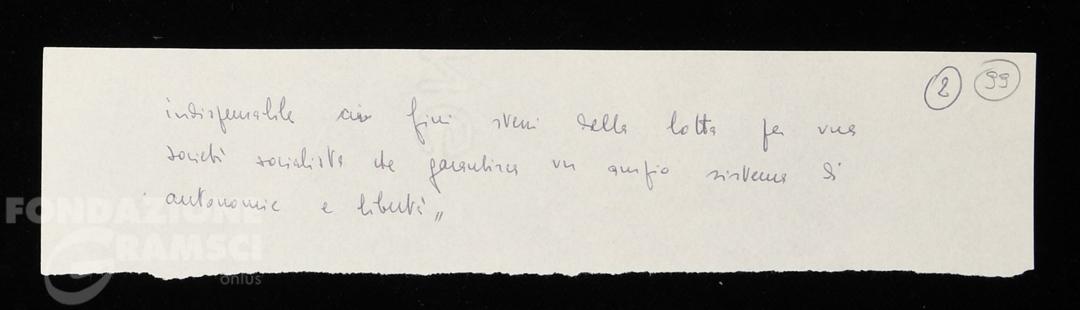 2 99
indispensabile ai fini stessi della lotta per una
società socialista che garantisca un ampio sistema di
autonomie e libertà"
FONDAZIONE
GRAMSCI
onlus